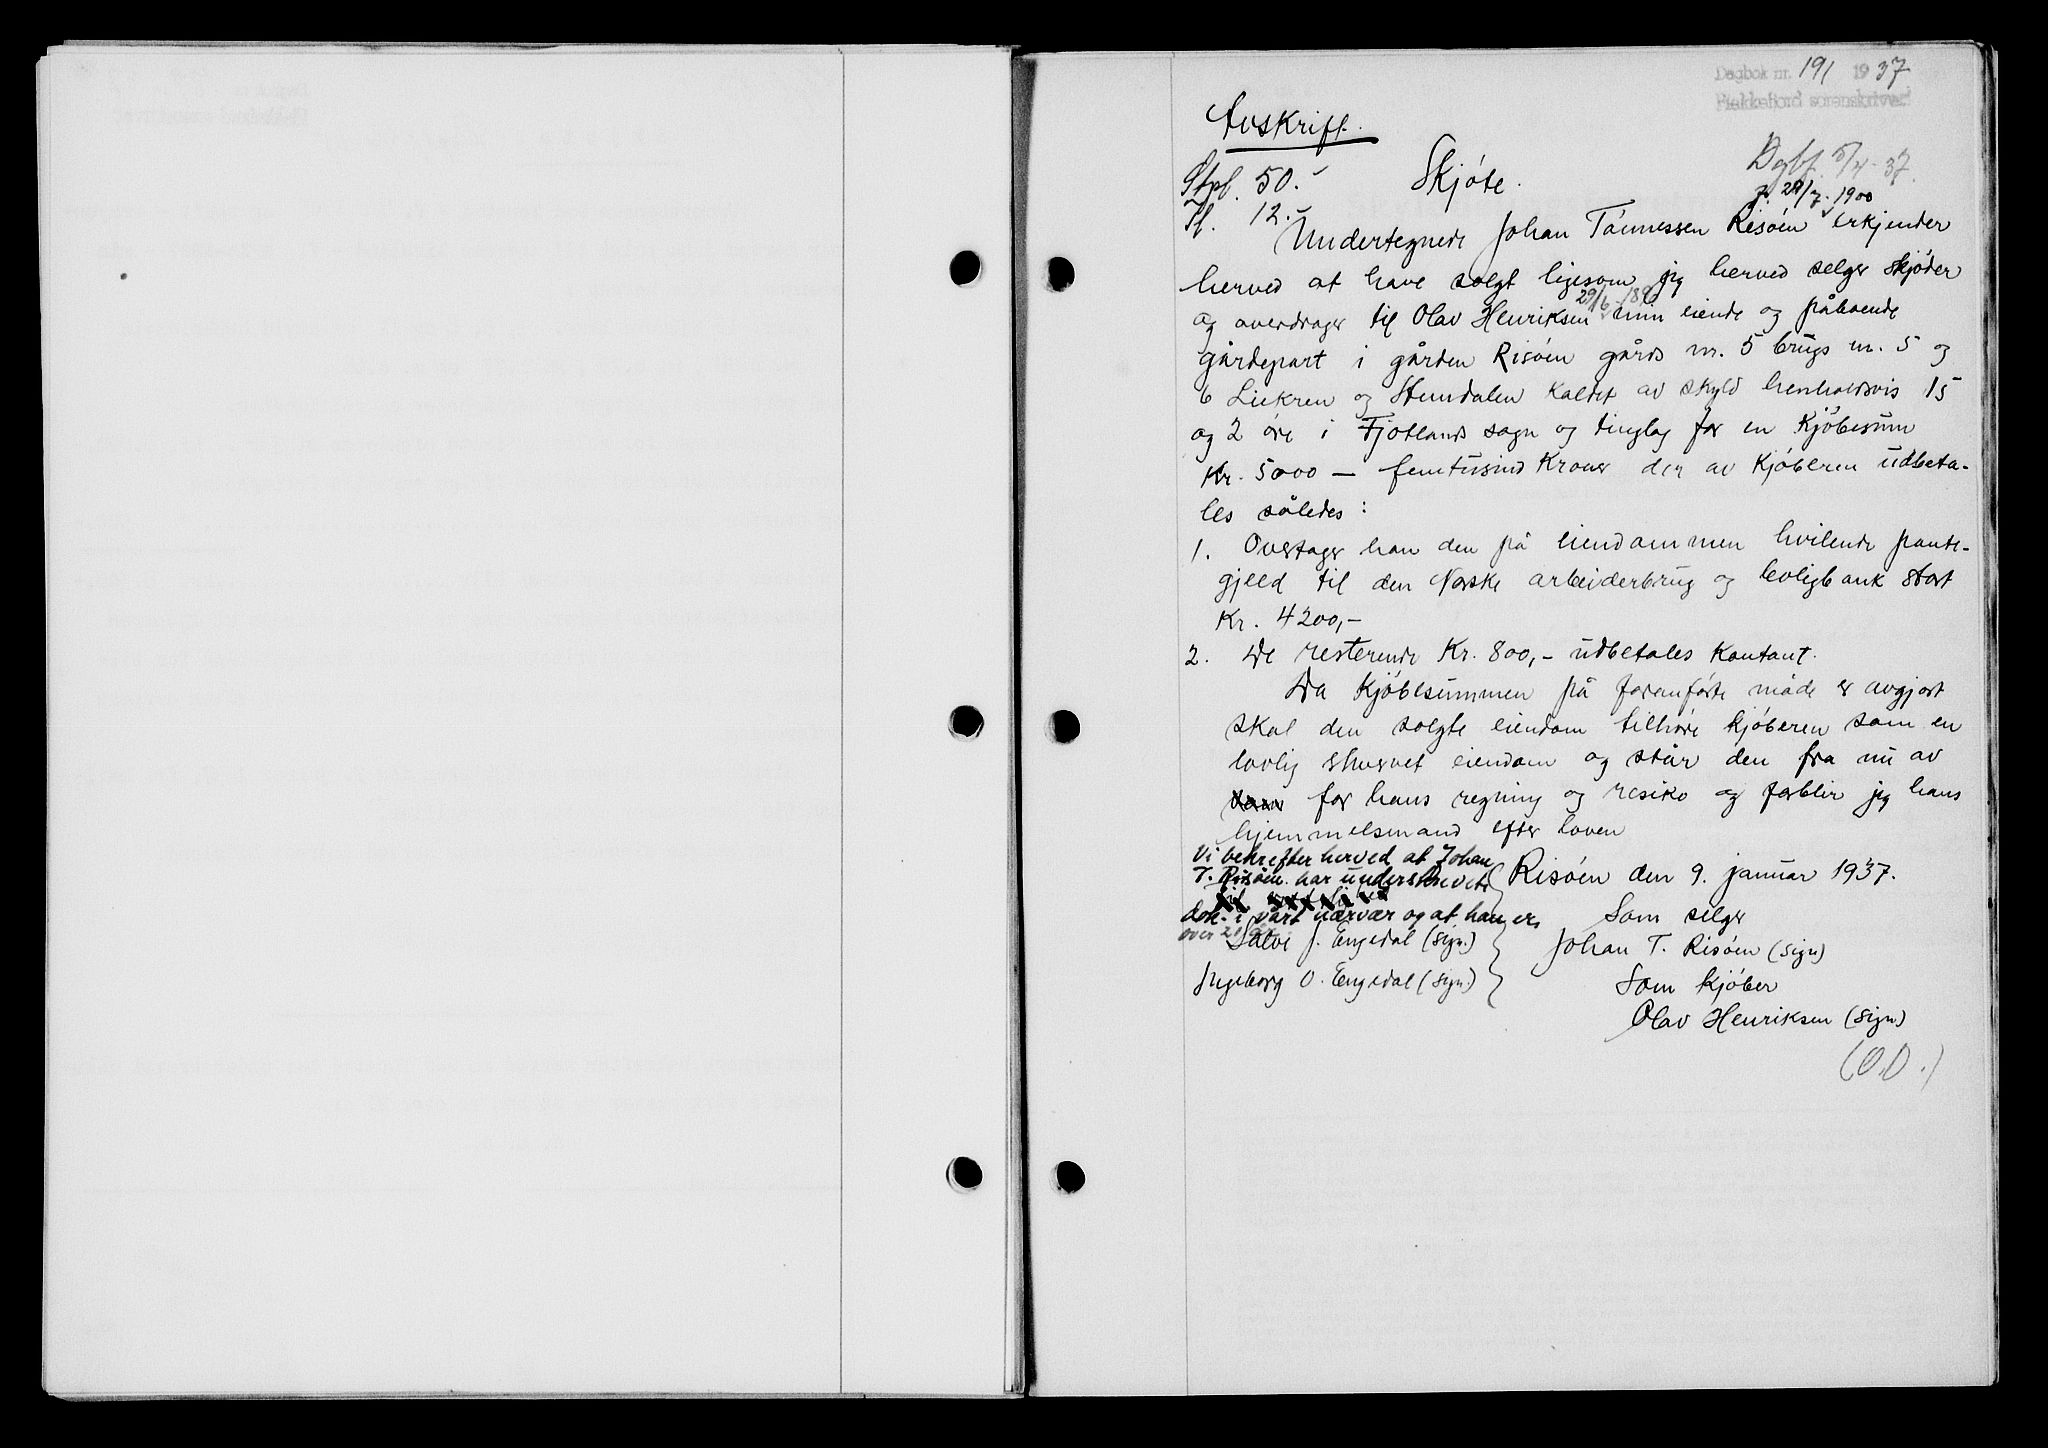 Dagbok nr. 191 1937
Flekkefjord sorenskriveri
Avskrift.
Dgbf. 5/4-37.
Stpl. 50.-
Skjöte.
Tl. 12.-
f. 29/7-1900
Undertegnede Johan Tönnessen Risöen erkjender
herved at have solgt ligesom jeg herved selger skjöder
29/6-
og overdrager til Olav Henriksen min eiende og påboende
gårdepart i gården Risöen gårds nr. 5 brugs nr. 5 og
6 Liekren og Stemdalen kaldet av skyld henholdsvis 15
og 2 öre i Fjotlands sogn og tinglag for en Kjöbesum
Kr. 5000 — femtusind Kroner der av Kjöberen udbeta-
les således:
1. Overtager han den på eiendommen hvilende pante-
gjeld til den Norske arbeiderbrug og boligbank stort
Kr. 4200,-
2. De resterende Kr. 800,- udbetales Kontant.
Da Kjöbesummen på foranförte måde er avgjort
skal den solgte eiendom tilhöre kjöberen som en
lovlig erhvervet eiendom og står den fra nu av
for hans regning og resiko og forblir jeg hans
hjemmelsmand efter loven
Risöen den 9. januar 1937.
Vi bekrefter herved at Johan
T. Risöen har underskrevet
dok. i vårt nærvær og at han er
over 21 år
Salve J. Engedal (sign.)
Ingeborg O. Engedal (sign.)
Som selger
Johan T. Risöen (sign)
Som kjöber
Olav Henriksen (sign)
(O.D.)